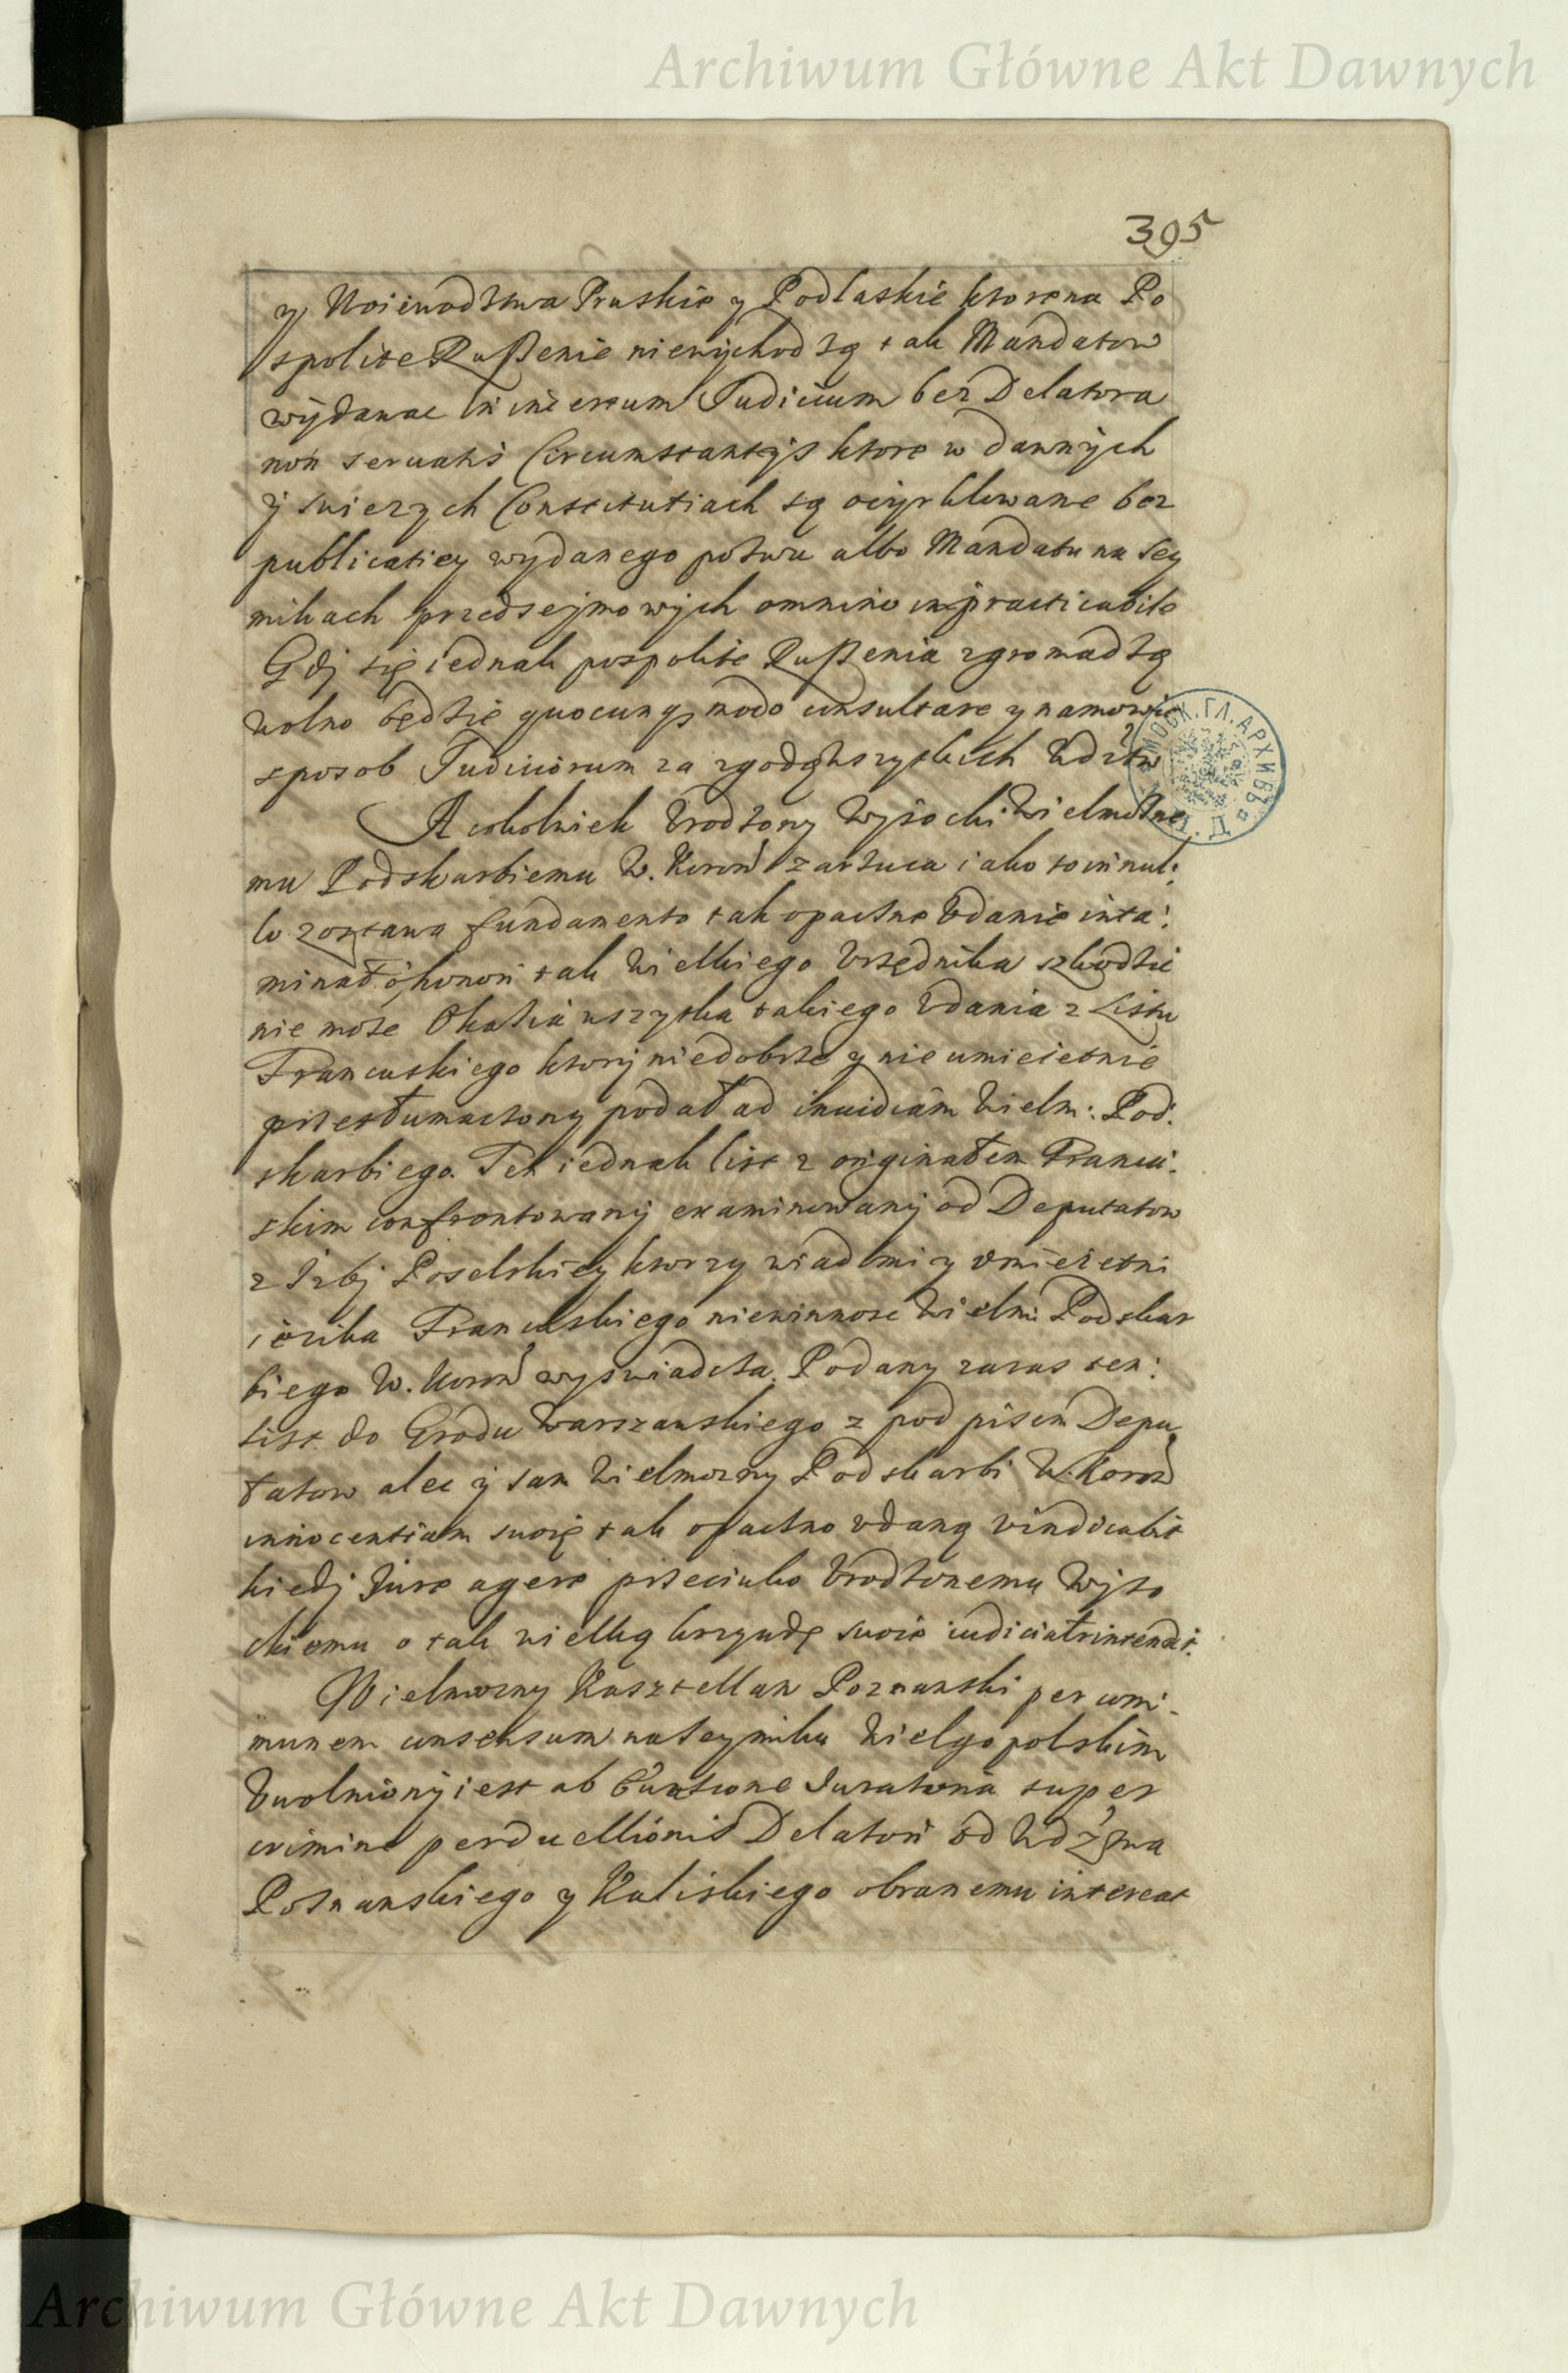 Archiwum Główne Akt Dawnych
395
y Woiewodztwa Pruskie y Podlaskie ktore na Po
spolite Rußenie niewychodzą tak Mandatow
wydawac in incertum Iudicium bez Delatora
non seruatis Circumstantijs ktore w dawnych
y swiezych Constitutiach są ocyrklowane bez
publicatiey wydanego pozwu albo Mandatu na Sey
mikach przedsejmowych omnino inpracticabile
Gdy się iednak pospolite Rußenia zgromadzą
wolno będzie quocunq modo consultare y namowic
sposob Iudiciorum za zgodą wszystkich Wdztw
A cokolwiek Vrodzony Wysocki Wielmozne
mu Podskarbiemu W. Koron zarzuca iako to in nul:
lo zostawa fundamento tak opaczne Vdanie inta:
minat honori tak Wielkiego Vrzędnika szkodzic
nie moze Okazia wszytka takiego Vdania z Listu
Francuskiego ktory niedobrze y nie umieietnie
przetłumaczony podał ad inuidiam Wielm: Pod:
skarbiego. Ten iednak list z originałem Francu:
skim confrontowany examinowany od Deputatow
z Izby Poselskiey ktorzy wiadomi y vmieietni
ięzika Francuskiego niewinnosc Wielm: Podskar
biego W. Koron wyswiadcza. Podany zaras ten:
List do Grodu Warszawskiego z podpisem Depu
tatow alec y sam Wielmozny Podskarbi W. Koron
innocentiam swoię tak opaczno vdaną vindicabit
kiedy Iure agere przeciwko Vrodzonemu Wyso
ckiemu o tak wielką krzywdę swoie iudicialr intendit.
Wielmozny Kasztellan Poznanski per com:
munem consensum na Seymiku Wielgopolskim
Vwolniony iest ab Cautione Iuratoria super
crimine perduellionis Delatori od Wdztwa
Poznanskiego y Kaliskiego obranemu intereat
МОСК. ГЛ. АРХИВЪ
Archiwum Główne Akt Dawnych